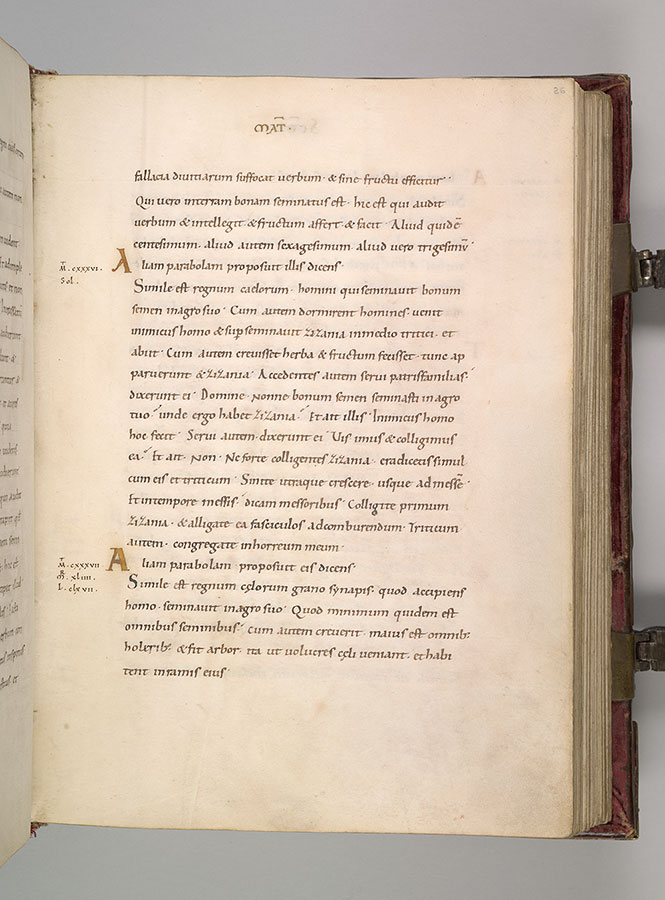 86
MAT̄
fallacia diuitiarum suffocat uerbum · & sine fructu efficitur ·
Qui uero interram bonam seminatus est · hic est qui audit
uerbum & intellegit & fructum affert & facit · Aliud quidē
centesimum · aliud autem sexagesimum · aliud uero trigesimū ·
M̄ · cxxxvi ·
Sol ·
Aliam parabolam proposuit illis dicens ·
Simile est regnum caelorum · homini qui seminauit bonum
semen inagro suo · Cum autem dormirent homines · uenit
inimicus homo & sup̄ seminauit zizania inmedio tritici · et
abiit · Cum autem creuisset herba & fructum fecisset · tunc ap
paruerunt & zizania · Accedentes autem serui patrisfamilias ·
dixerunt ei · Domine · Nonne bonum semen seminasti in agro
tuo · unde ergo habet zizania · Et ait illis · Inimicus homo
hoc fecit · Serui autem dixerunt ei · Uis imus & colligimus
ea · Et ait · Non · Ne forte colligentes zizania · eradicetis simul
cum eis et triticum · Sinite utraque crescere · usque ad messē ·
Et intempore messis · dicam messoribus · Colligite primum
zizania · & alligate ea fasciculos adcomburendum · Triticum
autem · congregate inhorreum meum ·
M̄ · cxxxvii
xliiii ·
L · clxvii ·
Aliam parabolam proposuit eis dicens ·
Simile est regnum cęlorum grano synapis · quod accipiens
homo · seminauit inagro suo · Quod minimum quidem est
omnibus seminibus · Cum autem creuerit · maius est omnib:
holerib: · & fit arbor · ita ut uolucres cęli ueniant · et habi
tent inramis eius ·